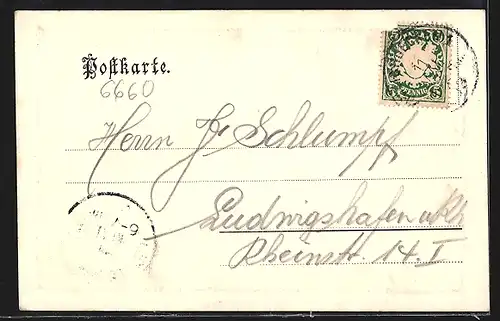 Postkarte.
6660
Herrn J. Schlumpf
Ludwigshafen a/Rh
Rheinstr. 14. I